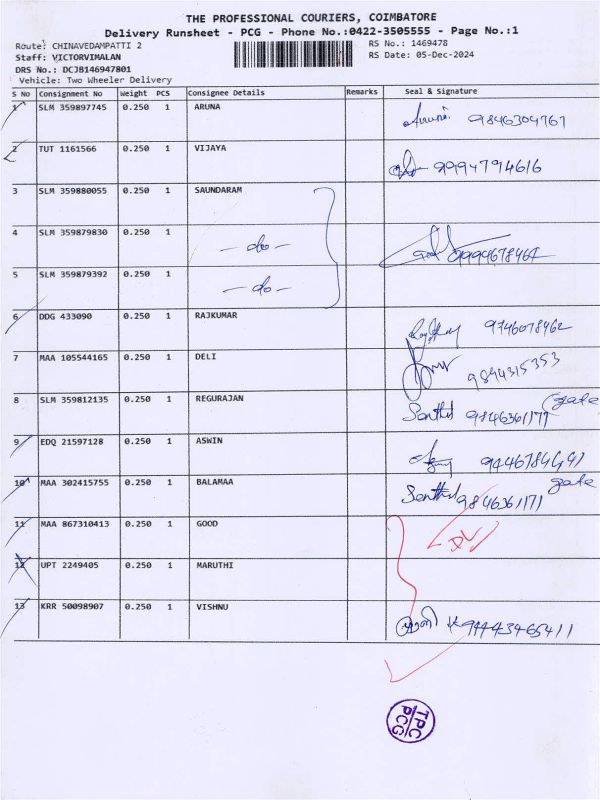 THE PROFESSIONAL COURIERS, COIMBATORE
Delivery Runsheet - PCG - Phone No.:0422-3505555 - Page No.:1
Route: CHINAVEDAMPATTI 2 RS No.: 1469478
Staff: VICTORVIMALAN RS Date: 05-Dec-2024
DRS No.: DCJB146947801
Vehicle: Two Wheeler Delivery
S No Consignment No Weight PCS Consignee Details Remarks Seal & Signature
1 SLM 359897745 0.250 1 ARUNA
9846304767
2 TUT 1161566 0.250 1 VIJAYA
9994794616
3 SLM 359880055 0.250 1 SAUNDARAM
4 SLM 359879830 0.250 1
- do - 9994678467
5 SLM 359879392 0.250 1
- do -
6 DDG 433090 0.250 1 RAJKUMAR
9746078462
7 MAA 105544165 0.250 1 DELI
9894315353
8 SLM 359812135 0.250 1 REGURAJAN
Senthil 9846361171 gate
9 EDQ 21597128 0.250 1 ASWIN
10 MAA 302415755 0.250 1 BALAMAA
Senthil 9846361171 gate
11 MAA 867310413 0.250 1 GOOD
DL
12 UPT 2249405 0.250 1 MARUTHI
13 KRR 50098907 0.250 1 VISHNU
TPC
PCG